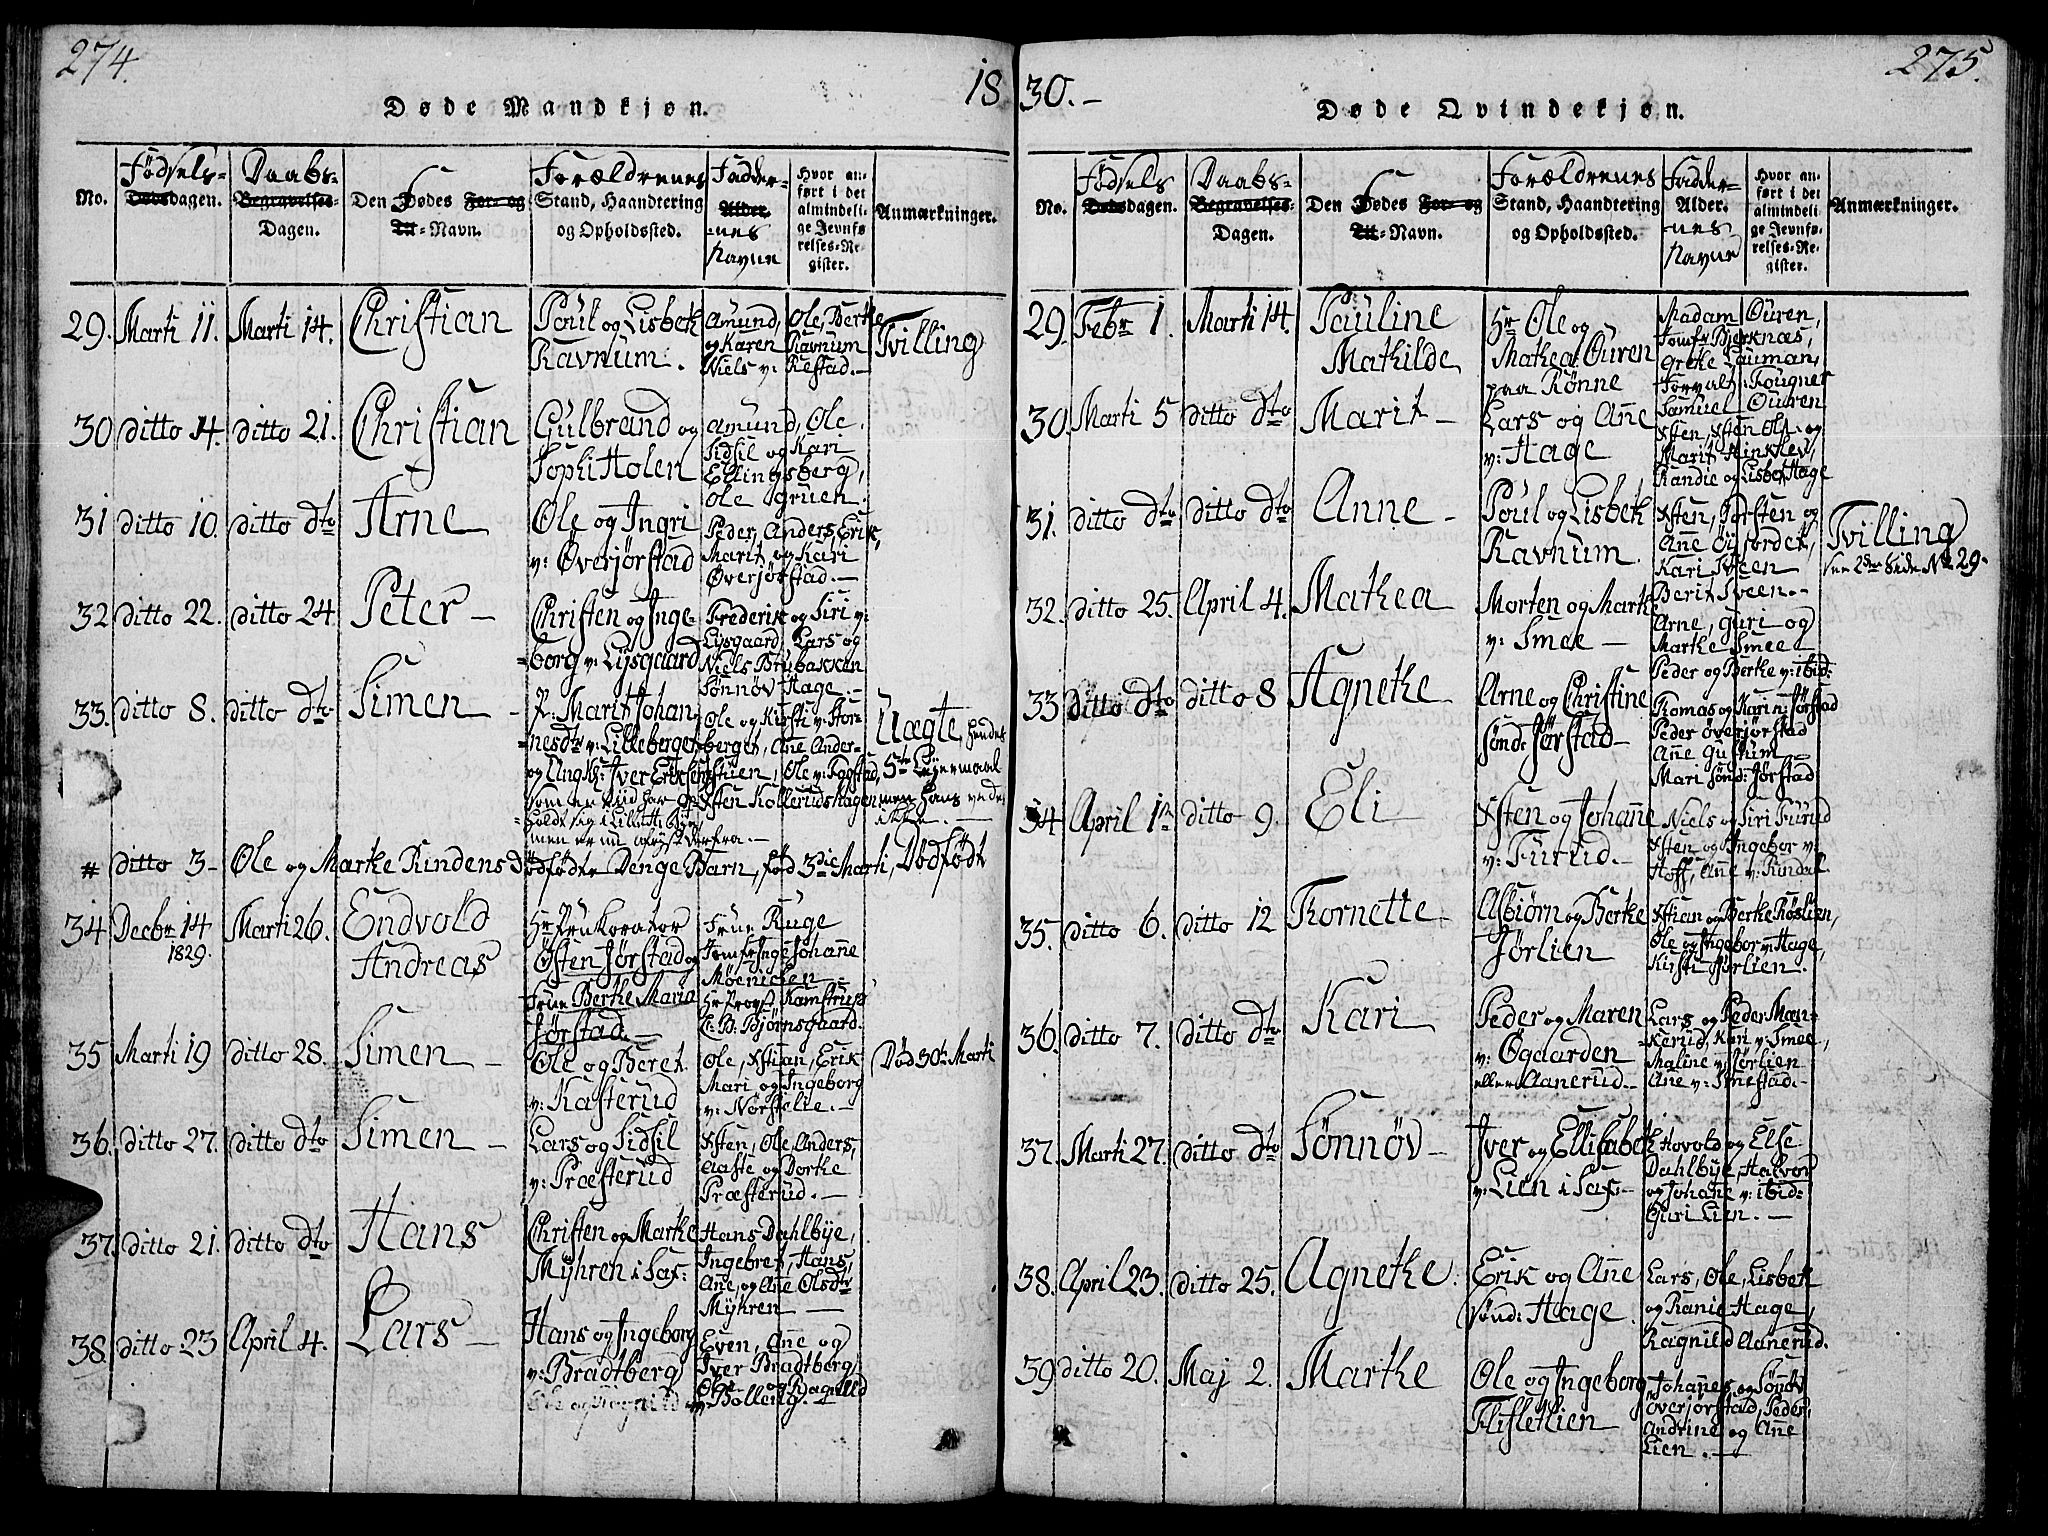 274.
18
Døde Mandkjøn.
No.
Fødsels-
Dødsdagen.
Daabs-
Begravelses-
Dagen.
Den Fødes For- og
Til-Navn.
Forældrenes
Stand, Haandtering
og Opholdssted.
Fadder-
Alder.
-nes
Navne
Hvor an-
ført i det
almindeli-
ge Jevnfø-
relses-Re-
gister.
Anmærkninger.
29. Marti 11. Marti 14. Christian
Poul og Lisbeth
Ravnum.
Amund, Ole, Berthe
og Karen Ravnum
Niels v: Restad.-
Tvilling
30 ditto 14. ditto 21. Christian
Gulbrand og
Sophi Holen
Amund, Ole,
Sidsil og Kari
Ellingsberg,
Ole Gruen.
31 ditto 10. ditto dto Arne
Ole og Ingri
v: Øverjørstad
Peder, Anders, Erik,
Marit og Kari
Øverjørstad.-
32 ditto 22. ditto 24. Peter -
Christen og Inge-
borg v: Lysgaard
Frederik og Siri v:
Lysgaard, Lars og
Niels Brubakken
Sønnøv Hage.-
33. ditto 8. ditto dto Simen -
P: Marit Johan-
nesdtr v: Lilleberget
og Ungk: Iver Erichsen
Ole og Kirsti v: Stor-
berget, Ane Ander-
stuen, Ole v: Fogstad,
Xsten Kollerudshagen
men er nu afrejst derfra.-
Uægte, hendes
5te Lejermaal
men hans vides
ikke.-
# ditto 3- Ole og Marthe Rindens dødfødte Drenge Barn, fød 3die Marti, Dødfødt
34 Decbr 14
1829.
Marti 26. Endvold
Andreas
Hr Prokorator
Østen Jørstad og
Frue Berthe Maria
Jørstad.-
Frue Ruge
Jomfr Inge Johanne
Møenichen
Hr Provst Kamstrup
C: B: Bjørnsgaard.
35 Marti 19 ditto 28. Simen -
Ole og Beret
v: Kasterud
Ole, Xstian, Erik
Mari og Ingeborg
v: Nørstelie.-
Død 30te Marti
36. ditto 27. ditto dto Simen -
Lars og Sidsil
v: Præsterud
Xsten, Ole, Anders,
Aaste og Dorthe
Præsterud.-
37. ditto 21. ditto dto Hans
Christen og Marthe
Myhren i Sax:
Hans Dahlbye,
Ingebret, Hans,
Ane, og Ane Olsdtr
Myhren -
38. ditto 23 April 4. Lars -
Hans og Ingeborg
v: Bradtberg
Even, Ane og
Iver Bradtberg,
Ole og Ragnild
v: Bolleng.-
30.-
275.
Døde Qvindekjøn.
No.
Fødsels
Dødsdagen.
Daabs-
Begravelses-
Dagen.
Den Fødes For- og
Til-Navn.
Forældrenes
Stand, Haandtering
og Opholdssted.
Fadder-
Alder.
-nes
Navne
Hvor an-
ført i det
almindeli-
ge Jevnfø-
relses-Re-
gister.
Anmærkninger.
29. Febr 1. Marti 14. Pauline
Mathilde
Hr Ole og
Mathea Ouren
paa Rønne
Madam Ouren,
Jomfr Bjerknæs,
Grethe Lauman,
Forvalt: Fougner
Samuel Ouren
30. Marti 5 ditto dto Marit -
Lars og Anne
v: Hage
Xsten, Xsten Ols: og
Marit Kinklev,
Randie og Lisbet Hage
31. ditto dto ditto dto Anne -
Poul og Lisbeth
Ravnum.
Xsten, Torsten og
Anne Øyjordet,
Kari Sveen
Berit Sveen.-
Tvilling
See 2den Side No 29-
32. ditto 25. April 4. Mathea
Morten og Marthe
v: Smee -
Arne, Guri og
Marthe Smee
Peder og Berthe v: ibid:
33 ditto dto ditto 8 Agnethe
Arne og Christine
Sønd: Jørstad-
Thomas og Kari n: Jørstad
Peder Øverjørstad
Anne Gustum
Mari Sønd: Jørstad
34 April 1ste ditto 9. Eli
Xsten og Johanne
v: Furud.-
Niels og Siri Furud
Xsten og Ingebor v:
Hoff, Anne v: Rindal
35. ditto 6. ditto 12 Thornette
Asbiørn og Berthe
Jørlien
Xstian og Berthe Røslien,
Ole og Ingebor v: Hage,
Kirsti Jørlien.
36. ditto 7. ditto dto Kari
Peder og Maren
v: Øgaarden
eller Aanerud.-
Lars og Peder Man-
kerud, Kari v: Smee,
Maline v: Jørlien
Ane v: Smestad.-
37. Marti 27. ditto dto Sønnøv -
Iver og Ellisabeth
v: Lien i Sax:-
Hovold og Else
Dahlbye, Halvor
og Johane v: ibid:
Guri Lien.-
38. April 23. ditto 25. Agnethe.
Erik og Anne
Sønd: Hage.
Lars, Ole, Lisbeth
og Ranie Hage,
Ragnild Aanerud.
39 ditto 20. Maj 2. Marthe
Ole og Ingeborg
Flisletlien
Johannes og Sønøv
Øverjørstad, Peder,
Andrine og Ane
Lien.-